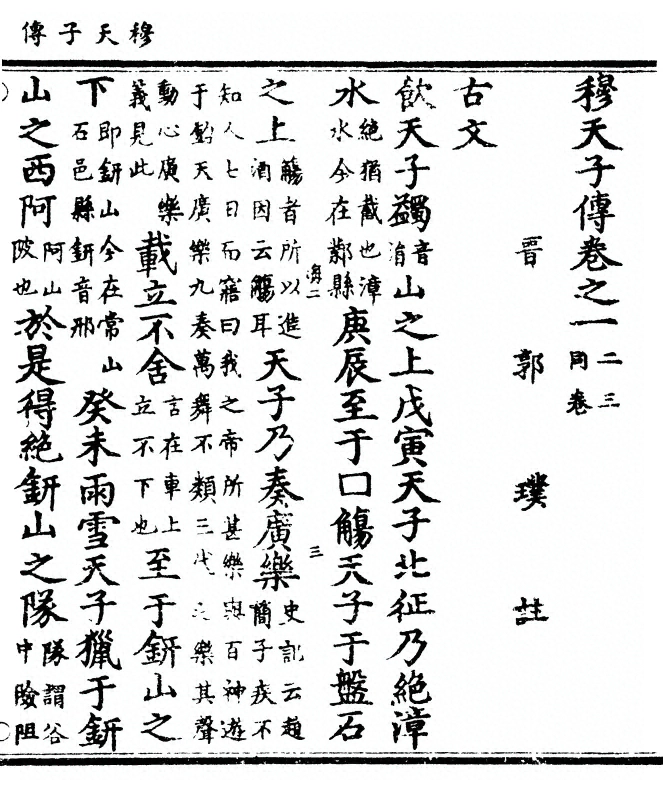 穆天子傳
穆天子傳卷之一二三同卷
晉郭璞註
古文
飲天子蠲音涓山之上戊寅天子北征乃絕漳
水絕猶截也漳水今在鄴縣庚辰至于口觴天子于盤石
海二
三
之上觴者所以進酒因云觴耳天子乃奏廣樂史記云趙簡子疾不
知人七日而寤曰我之帝所甚樂與百神遊
于鈞天廣樂九奏萬舞不類三代之樂其聲
動心廣樂義見此載立不舍言在車上立不下也至于鈃山之
下即鈃山今在常山石邑縣鈃音邢癸未雨雪天子獵于鈃
山之西阿阿山陂也於是得絕鈃山之隊隊謂谷中險阻